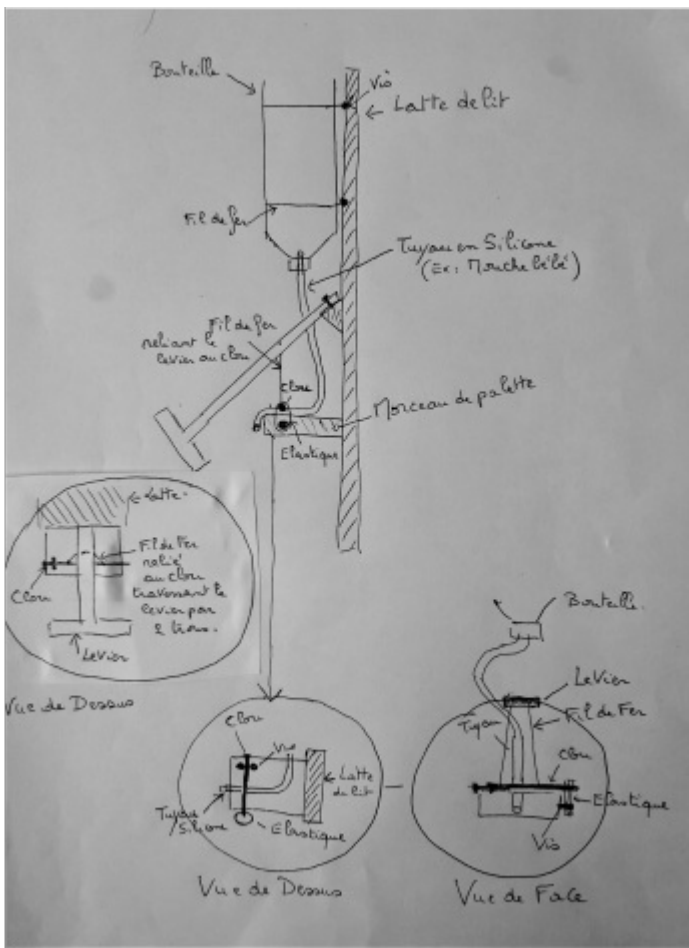 Bouteille
Vis
Latte de lit
Fil de fer
Tuyau en Silicone
(Ex: Mouche bébé)
Fil de fer
reliant le
levier au clou
Clou
Morceau de palette
Elastique
Latte
Fil de Fer
relié
au clou
traversant le
levier par
2 trous.
Clou
Levier
Vue de Dessus
Bouteille.
Levier
Tuyau
Fil de Fer
Clou
Elastique
Vis
Vue de Face
Clou
Vis
Latte
de lit
Tuyau
/Silicone
Elastique
Vue de Dessus